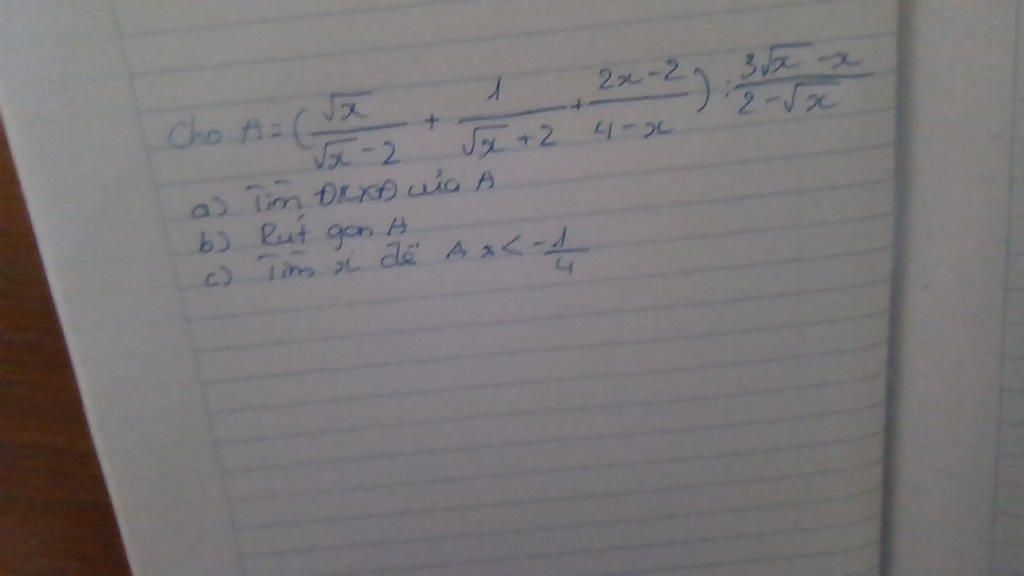 Cho A = (√x/(√x-2) + 1/(√x+2) + (2x-2)/(4-x)) : (3√x-x)/(2-√x)
a) Tìm ĐKXĐ của A
b) Rút gọn A
c) Tìm x để A < -1/4